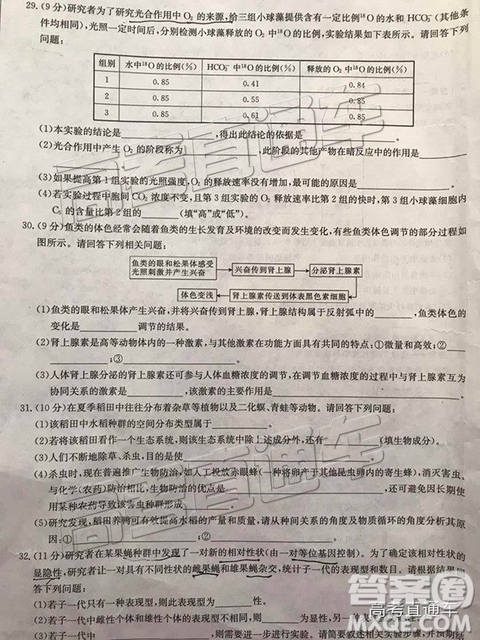 29.(9分)研究者为了研究光合作用中O₂的来源,给三组小球藻提供含有一定比例¹⁸O的水和HCO₃⁻(其他条
件均相同),光照一定时间后,分别检测小球藻释放的O₂中¹⁸O的比例,实验结果如下表所示。请回答以下
问题:
组别 水中¹⁸O的比例(%) HCO₃⁻中¹⁸O的比例(%) 释放的O₂中¹⁸O的比例(%)
1 0.85 0.41 0.84
2 0.85 0.55 0.85
3 0.85 0.61 0.85
(1)本实验的结论是________,得出此结论的依据是________。
(2)光合作用中产生O₂的阶段称为________,此阶段的其他产物在暗反应中的作用是________
________。
(3)如果提高第1组实验的光照强度,O₂的释放速率没有增加,最可能的原因是________。
(4)若实验过程中CO₂浓度不变,且第3组小球藻O₂释放速率比第2组的快时,第3组小球藻细胞内
C₅的含量比第2组的____(填“高”或“低”)。
30.(9分)鱼类的体色经常会随着鱼类的生长发育及环境的改变而发生变化,有些鱼类体色调节的部分过程如
图所示。请回答下列相关问题:
鱼类的眼和松果体感受光照刺激并产生兴奋 兴奋传到肾上腺 分泌肾上腺素
体色变浅 肾上腺素传送到体表黑色素细胞
(1)鱼类的眼和松果体产生兴奋,并将兴奋传到肾上腺,肾上腺结构属于反射弧中的________,鱼类体色的
变化是________调节的结果。
(2)肾上腺素是高等动物体内的一种激素,与其他激素在功能方面具有共同的特点:①微量和高效;②
________;③________。
(3)人体肾上腺分泌的肾上腺素还可参与人体血糖浓度的调节,在调节血糖浓度的过程中与肾上腺素互为
协同关系的激素是________,该激素的主要作用是________。
31.(10分)在夏季稻田中往往分布着杂草等植物以及二化螟、青蛙等动物。请回答下列问题:
(1)该稻田中水稻种群的空间分布类型属于________。
(2)若将该稻田看作一个生态系统,则该生态系统中除上述成分外,还有________(填生物成分)。
(3)人们不断地除草、杀虫,其目的是________。
(4)杀虫时,现在普遍推广生物防治,如人工投放赤眼蜂(一种将卵产于其他昆虫卵内的寄生蜂),消灭害虫。
与化学(农药)防治相比,生物防治的优点是________,还可避免因长期使
用某种农药导致该害虫种群________。
(5)研究发现,稻田养鸭可有效提高水稻的产量和质量,请从种间关系的角度及物质循环的角度分析其原
因:①________;②________。
32.(11分)研究者在某果蝇种群中发现了一对新的相对性状(由一对等位基因控制)。为了确定该相对性状的
显隐性,研究者让一对具有不同性状的雌果蝇和雄果蝇杂交,统计子一代的表现型及比例。请根据结果回
答下列问题:
(1)若子一代只有一种表现型,则此表现型为________。
(2)若子一代中雌性个体和雄性个体的表现型不同,则________为显性,另一
(3)若子一代中________,则需要进一步实验。请
高考直通车
答案圈